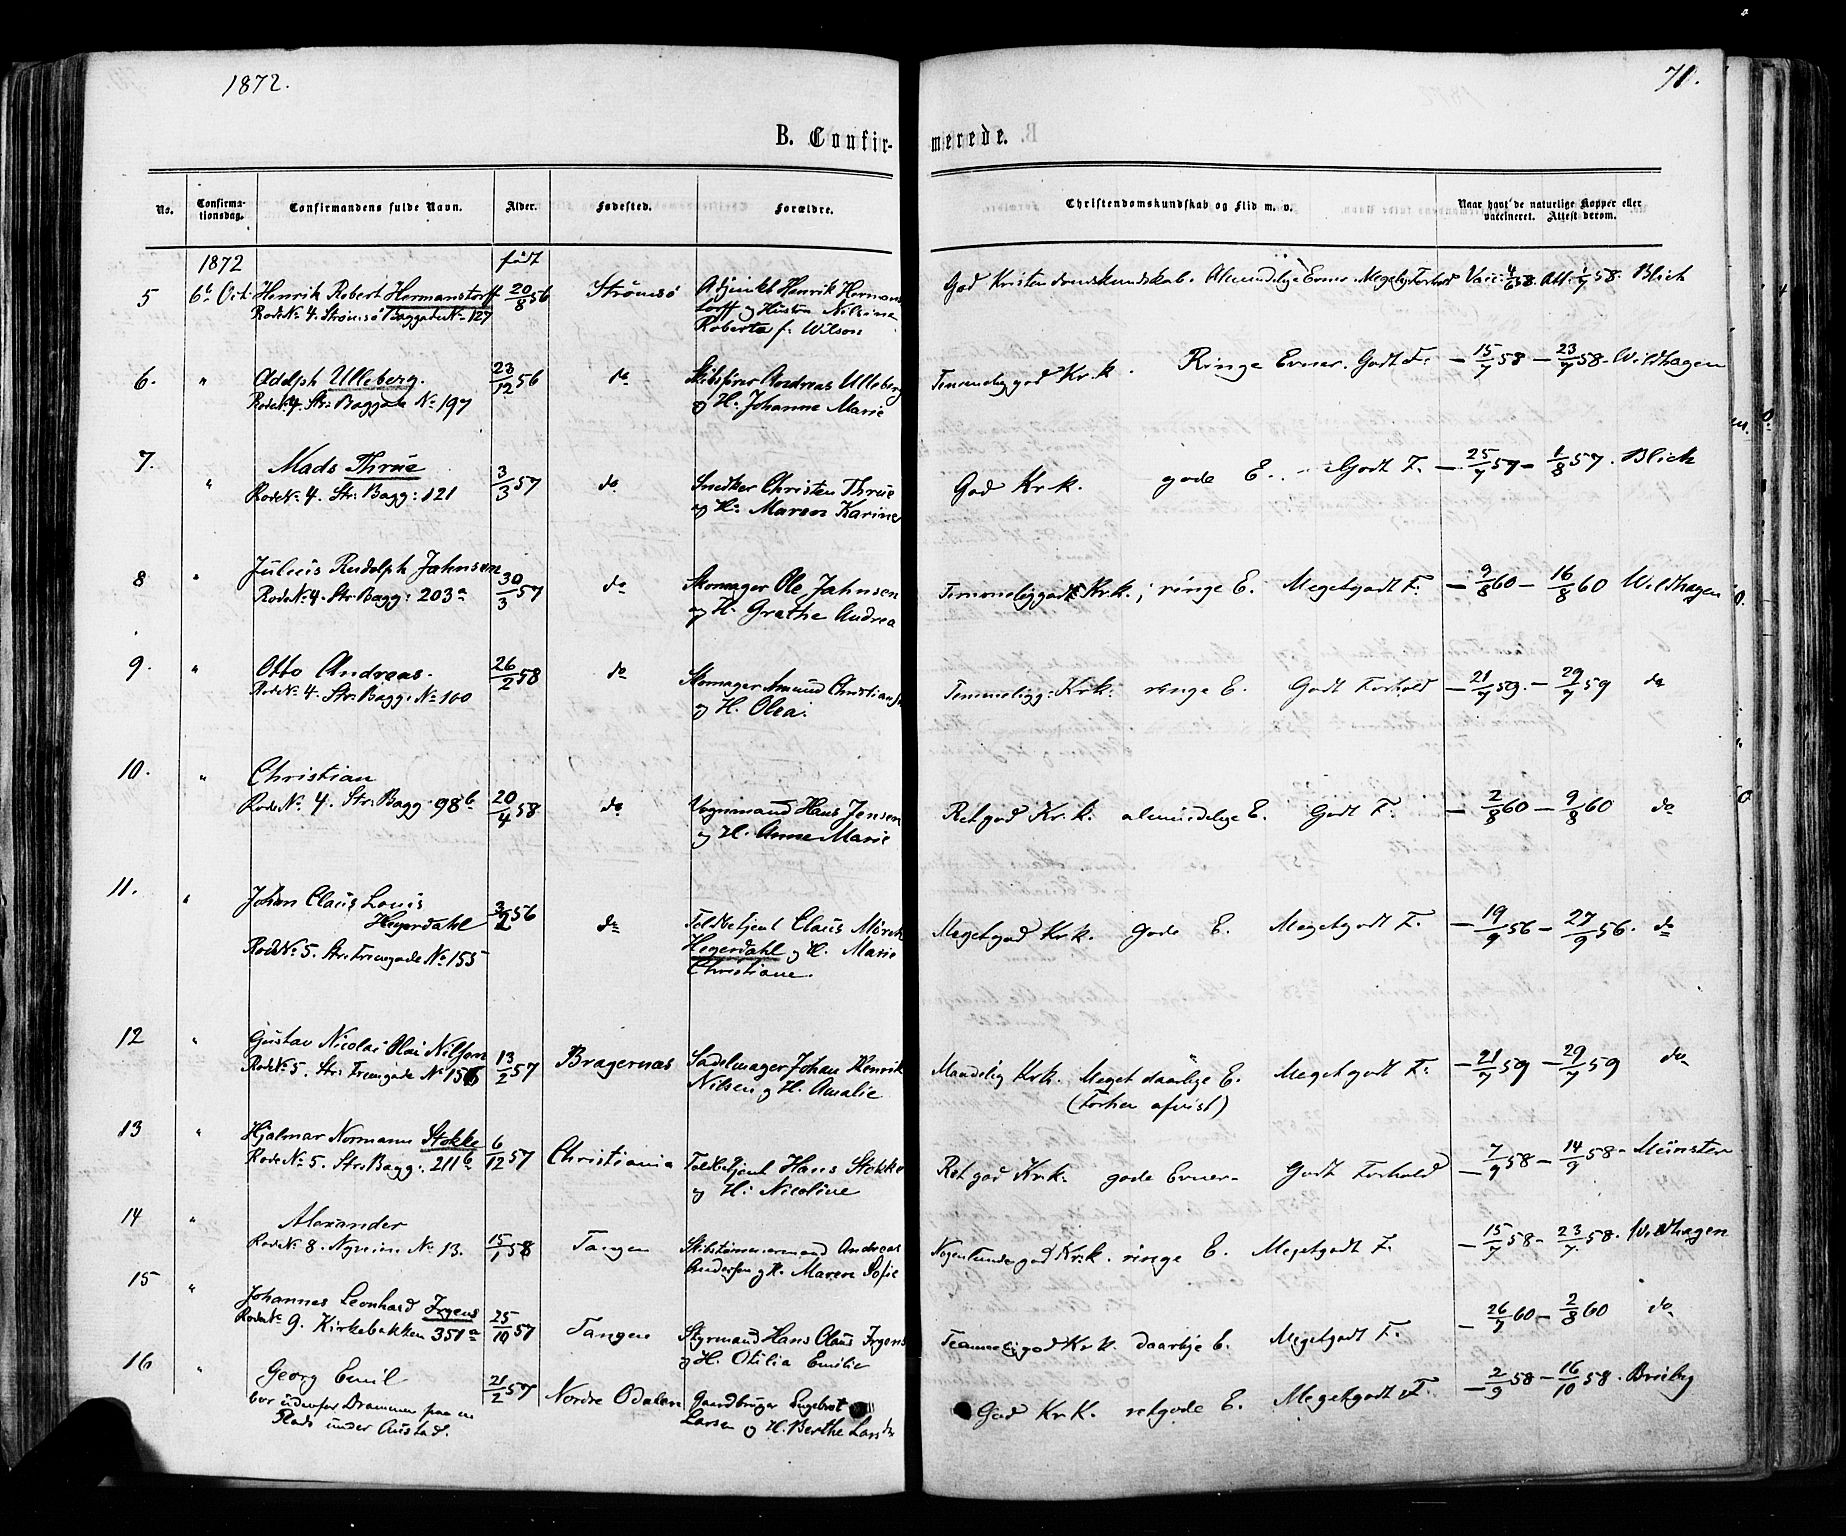 1872.
71.
B. Confir-
merede.
No.
Confirma-
tionsdag.
Confirmandens fulde Navn.
Alder.
Fødested.
Forældre.
Christendomskundskab og Flid m. v.
Naar havt de naturlige Kopper eller
vaccineret. Attest derom.
1872
født
5 6t Oct. Henrik Robert Hermanstorff 20/8 56 Strømsø Adjunkt Henrik Hermans
Rode No 4. Strømsø Baggade No 127 torff og Hustru Nilsine
Roberta f. Wilson
God Kristendomskundskab. Almindelige Evner. Meget godt Forhold Vacc: 4/6 58. Att: 1/7 58. Blich
6. " Adolph Ulleberg. 23/12 56 do Skibsfører Andreas Ulleberg
Rode No 4. Str: Baggade No 197 og H: Johanne Marie
Temmelig god Kr.k. Ringe Evner. Godt F: — 15/7 58 — 23/7 58. Wildhagen
7. " Mads Thrue 3/3 57 do Snedker Christen Thrue
Rode No 4. Str: Bagg: 121 og H: Maren Karine
God Kr.k. gode E. Godt F. — 25/7 57 — 1/8 57. Blich
8 " Julius Rudolph Jahnsen 30/3 57 do Skomager Ole Jahnsen
Rode No 4. Str: Bagg: 203a og H: Grethe Andrea
Temmelig godt Kr.k.; ringe E. Meget godt F. — 9/8 60 — 16/8 60 Wildhagen
9. " Otto Andreas. 26/2 58 do Skomager Amund Christians
Rode No 4. Str: Bagg: No 100 og H. Olea.
Temmelig g. Kr.k. ringe E. Godt Forhold — 21/7 59. — 29/7 59 do
10. " Christian 20/4 58 do Vognmand Hans Jensen
Rode No 4. Str: Bagg. 98b og H. Anne Marie
Ret god Kr.k. almindelige E. Godt F. — 2/8 60 — 9/8 60 do
11. " Johan Claus Louis 3/2 56 do Toldbetjent Claus Mørch
Heyerdahl Heyerdahl og H. Marie
Rode No 5. Str: Tverrgade No 155 Christiane.
Meget god Kr.k. Gode E. Meget godt F. — 19/9 56 — 27/9 56. do
12 " Gustav Nicolai Olai Nilsen 13/2 57 Bragernæs Sadelmager Johan Henrik
Rode No 5. Str: Tverrgade No 156 Nilsen og H. Amalie
Maadelig Kr.k. Meget daarlige E. Meget godt F. — 21/7 59 — 29/7 59 do
(Forhen afvist)
13 " Hjalmar Normann Stokke 6/12 57 Christiania Toldbetjent Hans Stokke
Rode No 5. Str: Bagg: 211b og H: Nicoline
Ret god Kr.k. gode Evner. Godt Forhold — 7/9 58 — 14/9 58. Münster
14 " Alexander 15/1 58 Tangen Skibstømmermand Andreas
Rode No 8. No 13. Andersen og H. Maren Sofie
Nogenlunde god Kr.k. ringe E. Meget godt F. — 15/7 58 — 23/7 58. Wildhagen
15 " Johannes Leonhard Irgens 25/10 57 Tangen Styrmand Hans Claus Irgens
Rode No 9. Kirkebakken 351a og H. Otilia Emilie
Temmelig god Kr.k. daarlige E. Meget godt F. — 26/7 60 — 2/8 60 do
16 " Georg Emil 21/2 57 Nordre Odalen Gaardbruger Engebret
bor udenfor Drammen paa en Larsen og H. Berthe Larsdr
Plads under Austad.
God Kr.k. ret gode E. Meget godt F. — 2/9 58 — 16/10 58.